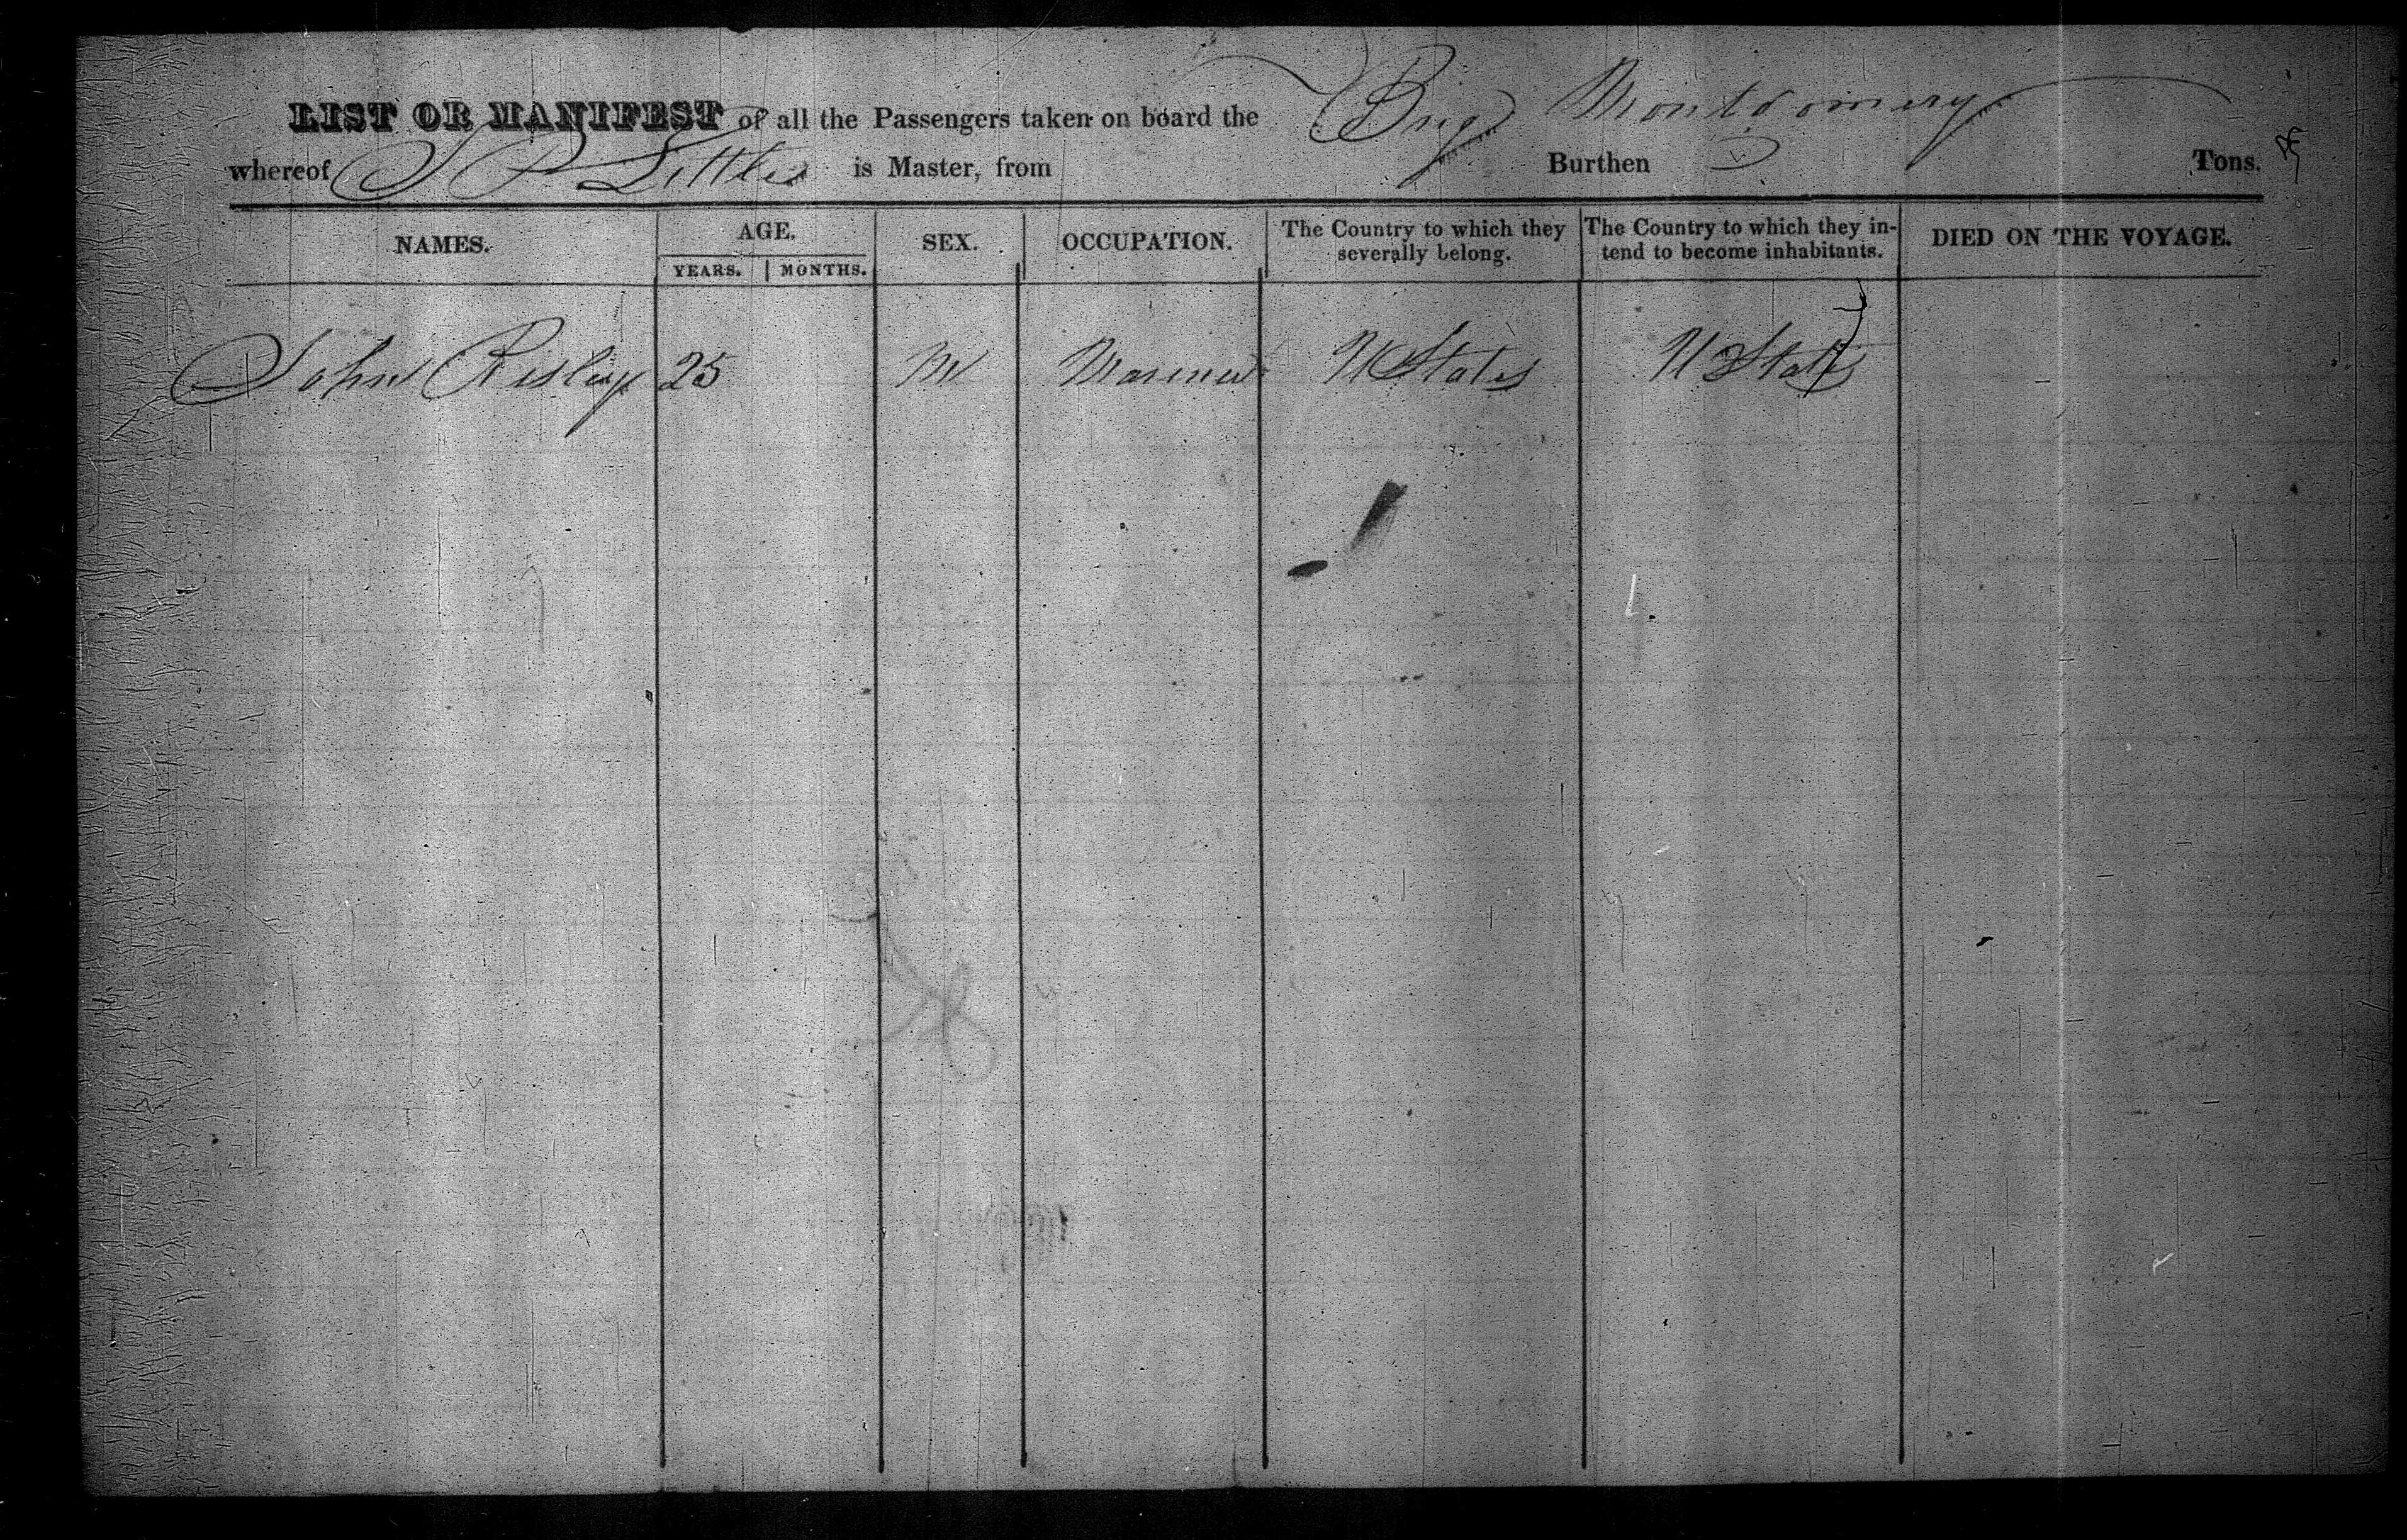 LIST OR MANIFEST of all the Passengers taken on board the Brig Montgomery
whereof J P Littles is Master, from Burthen Tons.
NAMES. AGE. SEX. OCCUPATION. The Country to which they severally belong. The Country to which they intend to become inhabitants. DIED ON THE VOYAGE.
YEARS. MONTHS.
John Risley 25 M Mariner U States U States